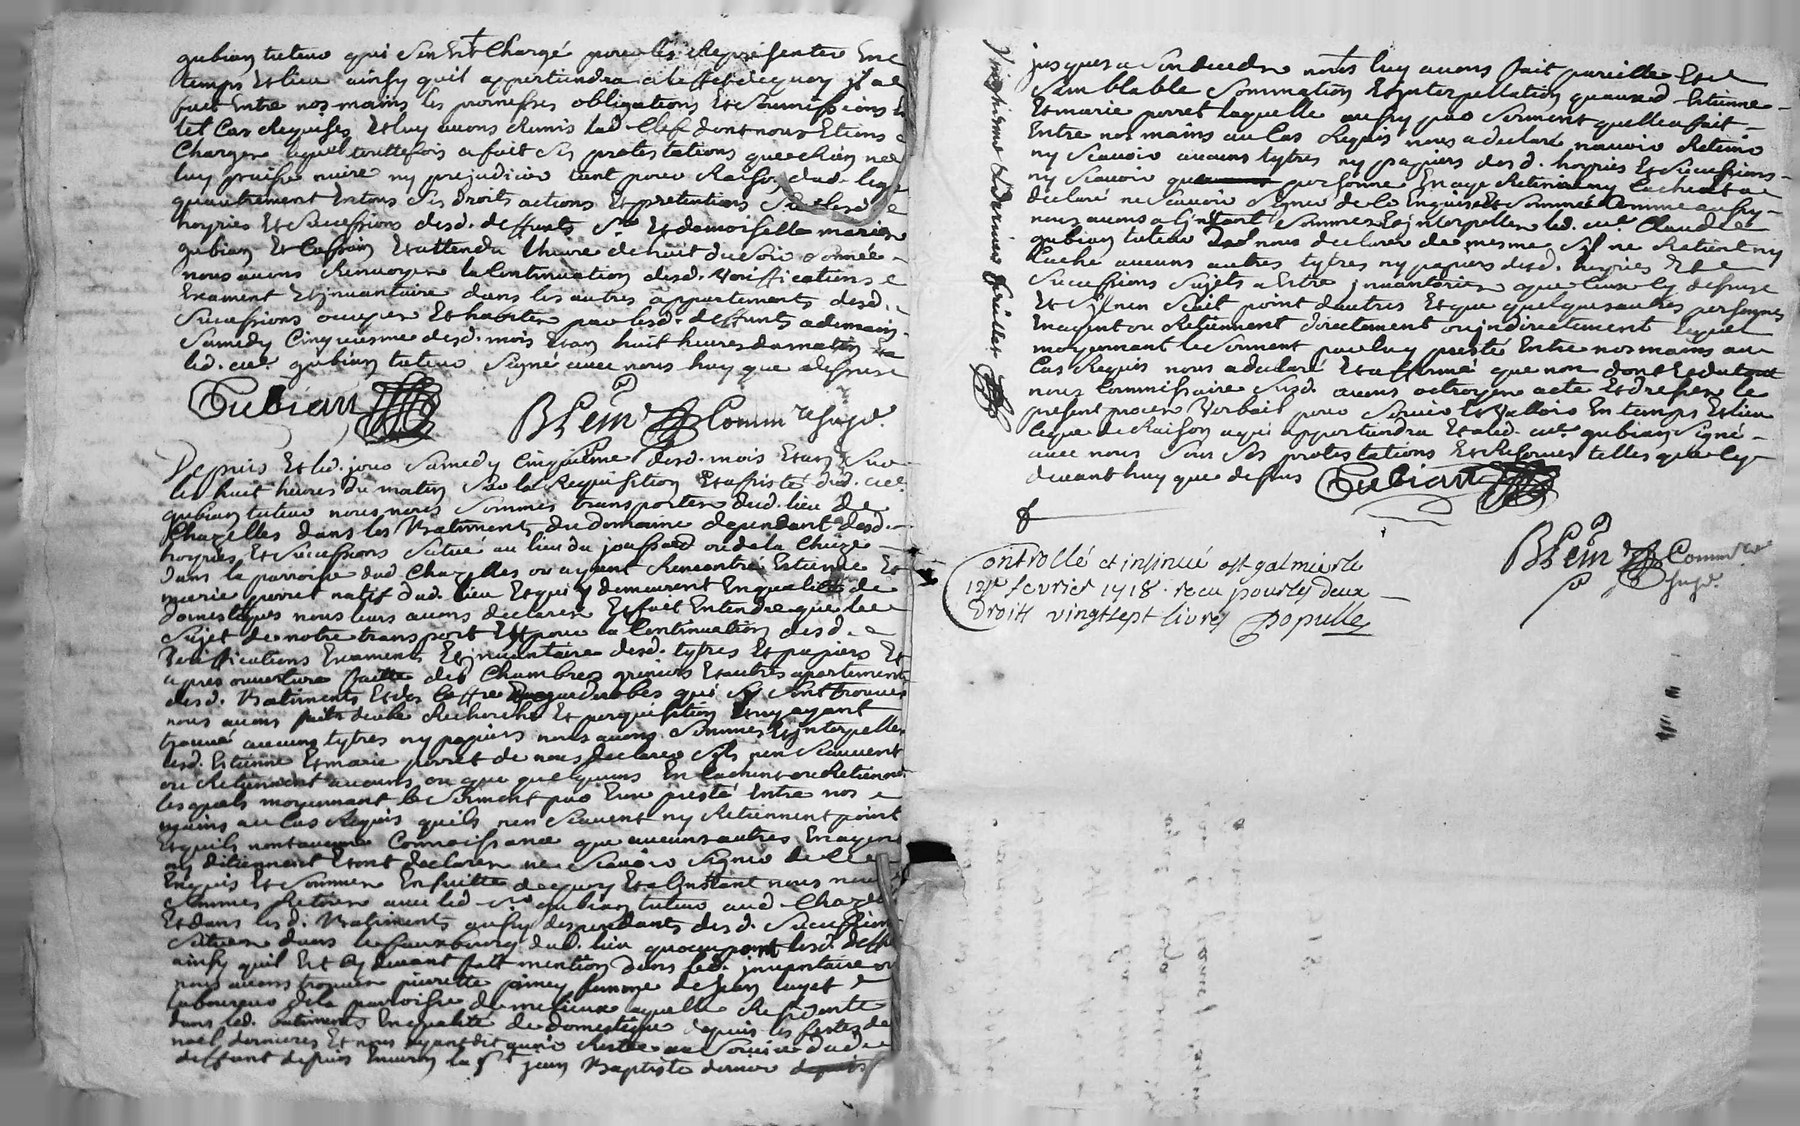 gubian tuteur qui s'en est chargé pour les representer en
temps et lieu ainsy quil appartiendra a leffet dequoy il a
fait entre nos mains les promesses obligations et soumissions
tel cas requises et luy avons remis lad. clef dont nous etions
charger lequel touttefois a fait ses protestations que rien ne
luy puisse nuire ny prejudicier tant pour raison dud. legs
quautrement en tous ses droits actions et pretentions sur lesd.
hoyries et successions desd. deffunts Sr. et demoiselle marier
gubian et et attendu lheure de huit du soir sonnée
nous avons renvoyer la continuation desd. veriffications
exament et jnventaire dans les autres appartements desd.
successions occuper et habiter par lesd. deffunts a demain
samedy cinquiesme desd. mois et an huit heures du matin et a
led. me. gubian tuteur signé avec nous huy que dessus
Gubian BLein Commre susd.
Depuis et led. jour samedy cinquiesme desd. mois et an sur
les huit heures du matin sur la requisition et assisté dud. me.
gubian tuteur nous nous sommes transporter dud. lieu de
Chazelles dans les Batiments du domaine dependant desd.
hoyries et successions situé au lieu du joussard ou de la
dans la parroisse dud. Chazelles ou ayant rencontré Estienne et
marie porret natif dud. lieu et qui y demeurent en qualité de
domestiques nous leurs avons declarer et fait entendre que le
sujet de notre transport est pour la continuation desd.
veriffications examents et jnventaire desd. tytres et papiers et
apres ouverture faitte des chambres greniers et autres apartements
desd. Batiments et des coffre garderobbes qui sy sont trouver
nous avons faits deube recherche et perquisition et ny ayant
trouvé aucuns tytres ny papiers nous avons sommer et jnterpeller
lesd. Estienne et marie porret de nous declarer sils nen scauvent
ou retiennent aucuns ou que quelquuns en cachent ou retiennent
lesquels moyennant le serment par eux presté entre nos
mains au cas requis quils nen scavent ny retiennent point
et quils nont aucune connoissance que aucuns autres en ayent
ny ditiennent et ont declarer ne scavoir signer de ce
enquis et sommer en suitte dequoy et a linstant nous nous
sommes retirer avec led. sr. gubian tuteur aud. Chazelles
et dans lesd. Batiments aussy despendants desd. successions
situer dans le fauxbourg dud. lieu lesd. deffts
ainsy quil est cy devant fait mention dans led. jnventaire ou
nous avons trouver pierrette femme de Jean
laboureur de la parroisse de laquelle residente
dans led. batiments en qualité de domestique depuis les festes de
noël dernieres et nous ayant dit avoir restée au service dud.
deffunt depuis environ la st. jean Baptiste dernier
jusques a son deceder nous luy avons fait pareille et
semblable sommation et jnterpellation quaux d. Estienne
et marie porret laquelle aussy par serment quelle a fait
entre nos mains au cas requis nous a declaré navoir retenir
ny scavoir aucuns tytres ny papiers desd. hoyries et successions
ny scavoir que personne en aye retenir ny caché et a
declaré ne scavoir signer de ce enquise et sommée comme aussy
nous avons a linstant sommer et jnterpeller led. me. Claude
gubian tuteur de nous declarer de mesme sil ne retient ny
caché aucuns autres tytres ny papiers desd. hoyries et
successions sujets a estre jnventorier que ceux cy dessus
et sil nen scait point dautres et que quelques autres personnes
en ayent ou retiennent directement ou jndirectement lequel
moyennant le serment par luy presté entre nos mains au
cas requis nous a declaré et affirmé que non dont et du tout
nous commissaire susd. avons octroyer acte et dresser le
present procer verbail pour servir et valloir en temps et lieu
ce que de raison a qui appartiendra et a led. me. gubian signé
avec nous sous ses protestations et reserves telles que cy
devant huy que dessus Gubian
BLein Commre
susd.
Controllé et insinué a St galmier le
12e fevrier 1718. receu pour les deux
Droits vingt sept livres Populle
et dernier feuillet